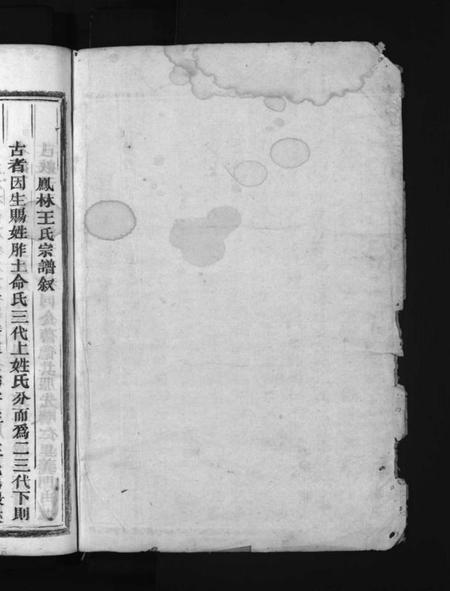 鳳林王氏宗譜叙
古者因生賜姓胙土命氏三代上姓氏分而爲二三代下則